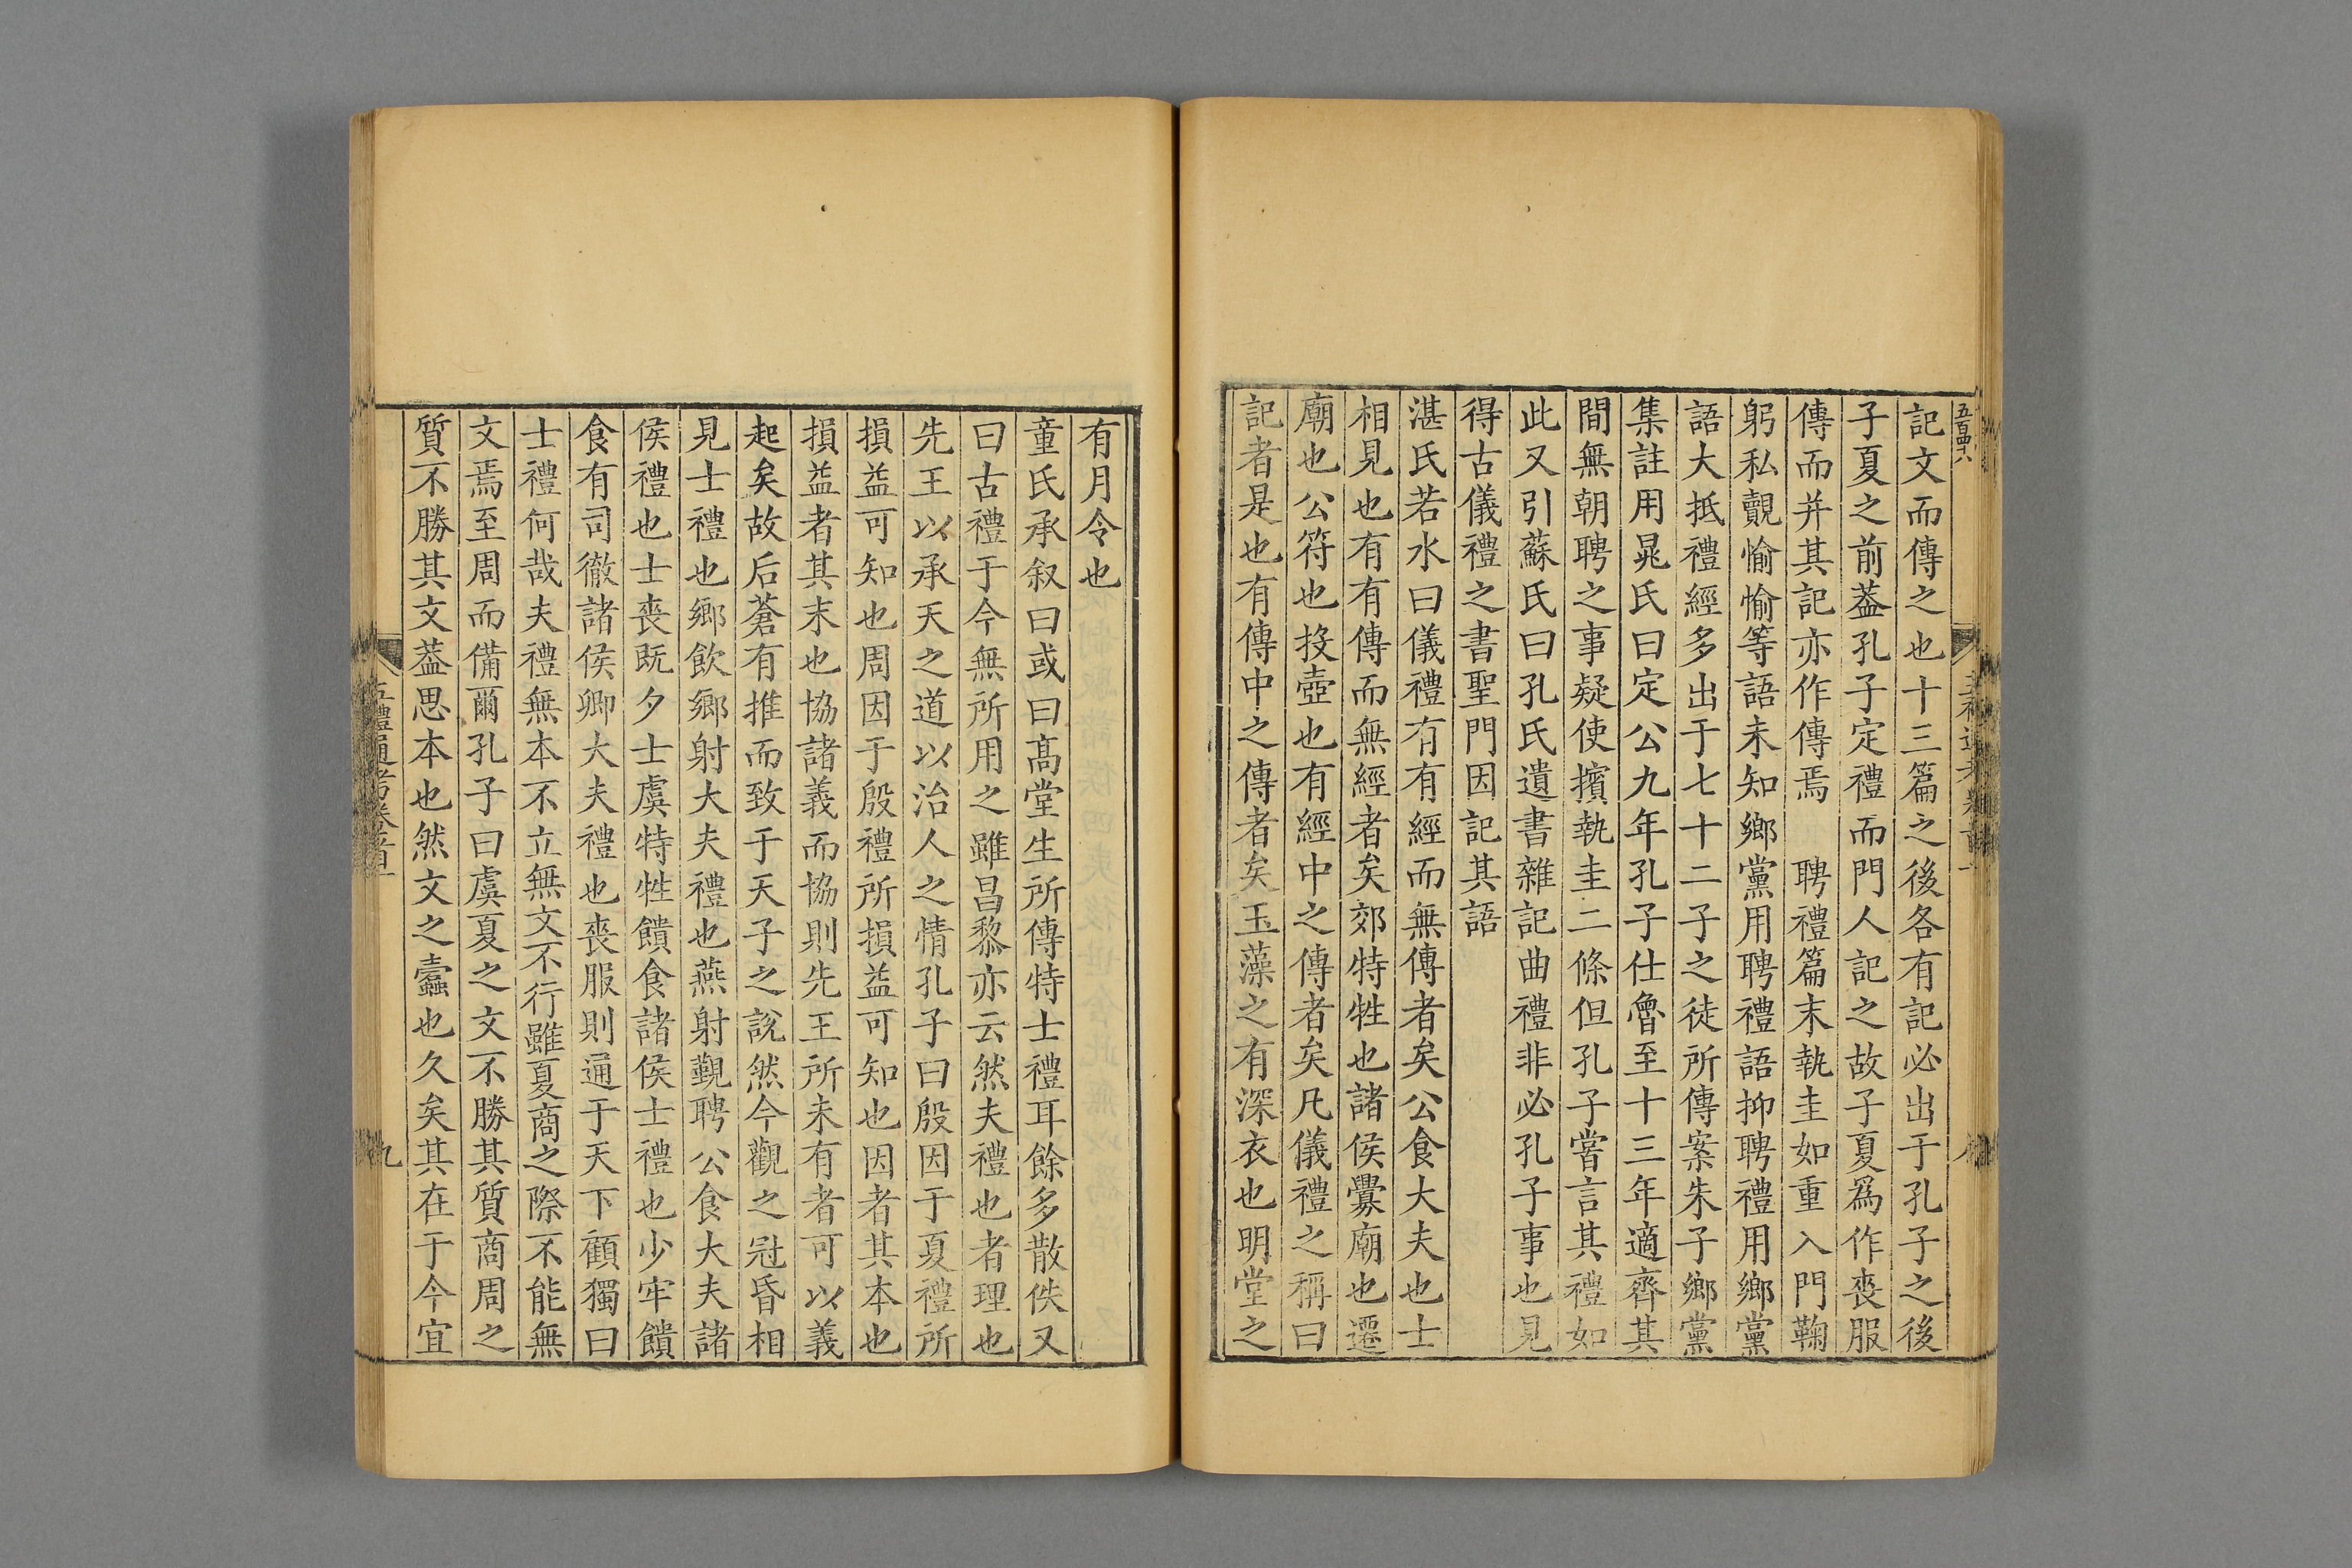 五百四十八
記文而傳之也十三篇之後各有記必出于孔子之後
子夏之前葢孔子定禮而門人記之故子夏爲作喪服
傳而并其記亦作傳焉　聘禮篇末執圭如重入門鞠
躬私覿愉愉等語未知鄉黨用聘禮語抑聘禮用鄉黨
語大抵禮經多出于七十二子之徒所傳案朱子鄉黨
集註用晁氏曰定公九年孔子仕魯至十三年適齊其
間無朝聘之事疑使擯執圭二條但孔子嘗言其禮如
此又引蘇氏曰孔氏遺書雜記曲禮非必孔子事也見
得古儀禮之書聖門因記其語
湛氏若水曰儀禮有有經而無傳者矣公食大夫也士
相見也有有傳而無經者矣郊特牲也諸侯釁廟也遷
廟也公符也投壺也有經中之傳者矣凡儀禮之稱曰
記者是也有傳中之傳者矣玉藻之有深衣也明堂之
有月令也
童氏承叙曰或曰高堂生所傳特士禮耳餘多散佚又
曰古禮于今無所用之雖昌黎亦云然夫禮也者理也
先王以承天之道以治人之情孔子曰殷因于夏禮所
損益可知也周因于殷禮所損益可知也因者其本也
損益者其末也協諸義而協則先王所未有者可以義
起矣故后蒼有推而致于天子之說然今觀之冠昏相
見士禮也鄉飲鄉射大夫禮也燕射覲聘公食大夫諸
侯禮也士喪既夕士虞特牲饋食諸侯士禮也少牢饋
食有司徹諸侯卿大夫禮也喪服則通于天下顧獨曰
士禮何哉夫禮無本不立無文不行雖夏商之際不能無
文焉至周而備爾孔子曰虞夏之文不勝其質商周之
質不勝其文葢思本也然文之蠹也久矣其在于今宜
五禮通考卷首一
九